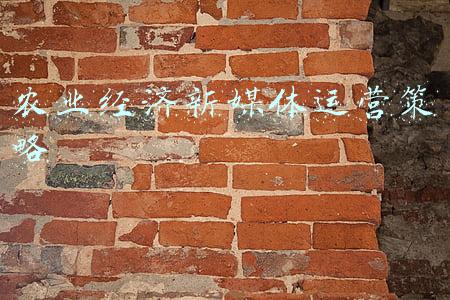 农业经济新媒体运营策
略